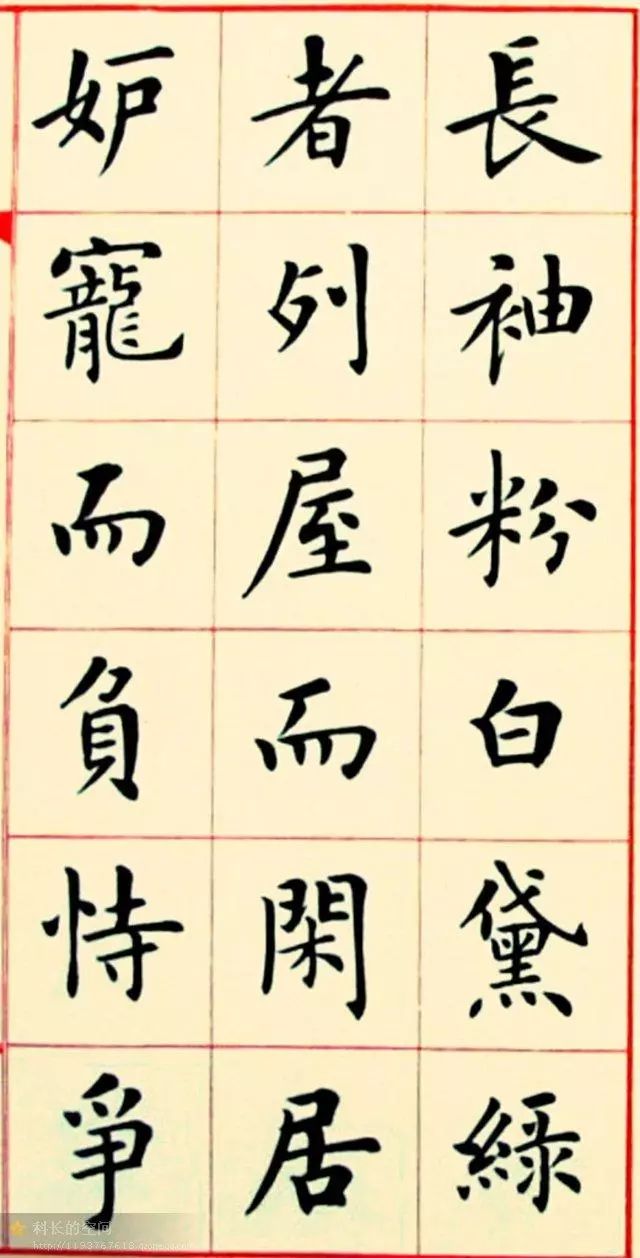 長袖粉白黛綠
者列屋而閑居
妒寵而負恃爭
科长的空间
http://1193767618.qzone.qq.com